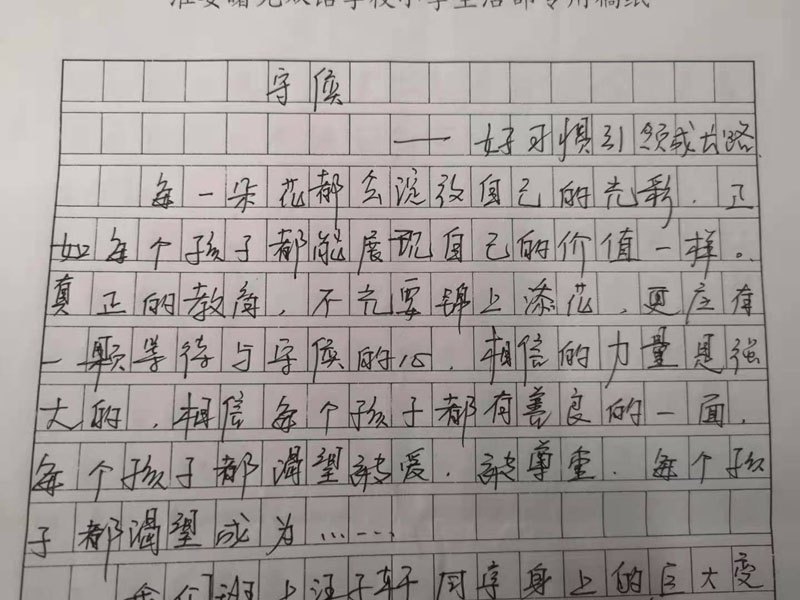 守候
——好习惯引领成长路
每一朵花都会绽放自己的光彩，正
如每个孩子都能展现自己的价值一样。
真正的教育，不光要锦上添花，更应有
一颗等待与守候的心，相信的力量是强
大的，相信每个孩子都有善良的一面，
每个孩子都渴望被爱，被尊重，每个孩
子都渴望成为……
班上汪子轩同学身上的巨大变